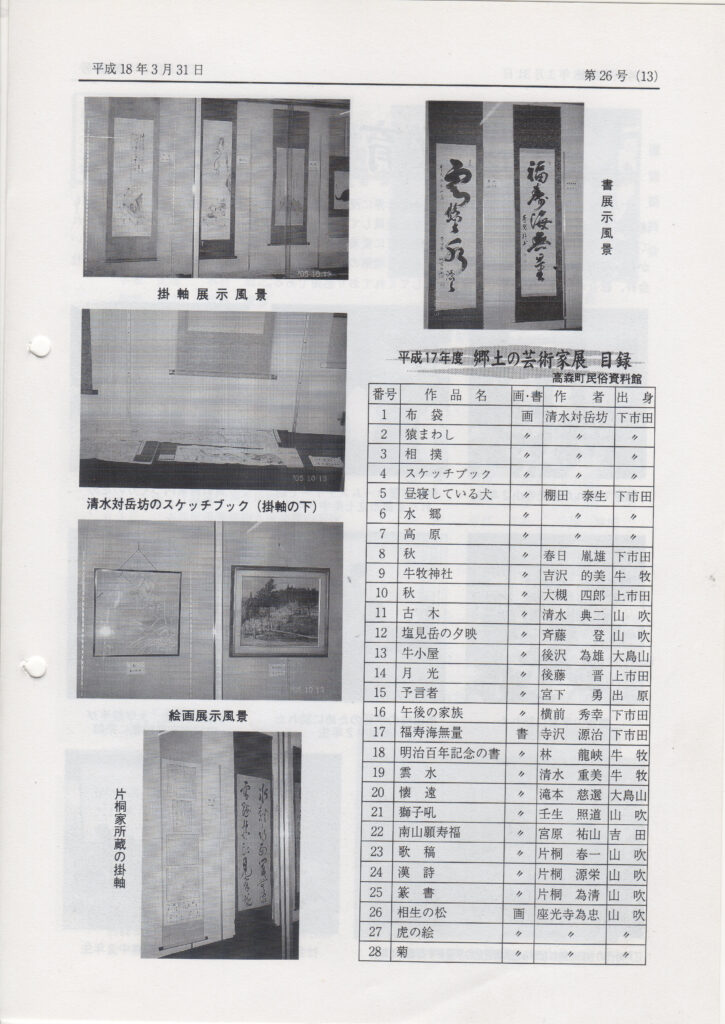 平成18年3月31日
第26号 (13)
'05 10 19
掛軸展示風景
書展示風景
'05 10 19
清水対岳坊のスケッチブック（掛軸の下）
'05 10 19
絵画展示風景
片桐家所蔵の掛軸
福寿海無量
平成17年度 郷土の芸術家展 目録
高森町民俗資料館
番号 作品名 画・書 作者 出身
1 布袋 画 清水対岳坊 下市田
2 猿まわし 〃 〃 〃
3 相撲 〃 〃 〃
4 スケッチブック 〃 〃 〃
5 昼寝している犬 〃 棚田 泰生 下市田
6 水郷 〃 〃 〃
7 高原 〃 〃 〃
8 秋 〃 春日 胤雄 下市田
9 牛牧神社 〃 吉沢 的美 牛牧
10 秋 〃 大槻 四郎 上市田
11 古木 〃 清水 典二 山吹
12 塩見岳の夕映 〃 斉藤 登 山吹
13 牛小屋 〃 後沢 為雄 大島山
14 月光 〃 後藤 晋 上市田
15 予言者 〃 宮下 勇 出原
16 午後の家族 〃 横前 秀幸 下市田
17 福寿海無量 書 寺沢 源治 下市田
18 明治百年記念の書 〃 林 龍峡 牛牧
19 雲水 〃 清水 重美 牛牧
20 懐遠 〃 滝本 慈選 大島山
21 獅子吼 〃 壬生 照道 山吹
22 南山願寿福 〃 宮原 祐山 吉田
23 歌稿 〃 片桐 春一 山吹
24 漢詩 〃 片桐 源栄 山吹
25 篆書 〃 片桐 為清 山吹
26 相生の松 画 座光寺為忠 山吹
27 虎の絵 〃 〃 〃
28 菊 〃 〃 〃